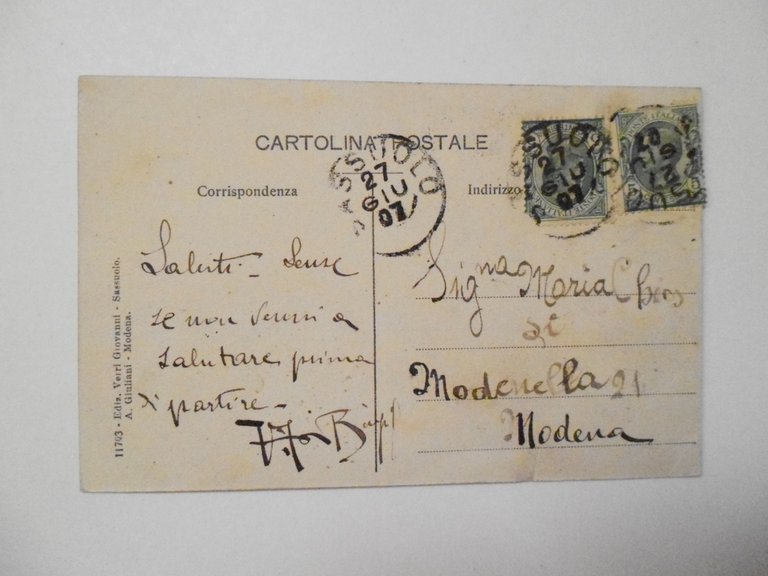 CARTOLINA POSTALE
Corrispondenza
Indirizzo
SASSUOLO
27
GIU
07
SASSUOLO
27
GIU
07
POSTE ITALIANE
Saluti - Scuse
se non venni a
salutare prima
di partire -
Signa Maria
di
Modenella 21
Modena
11703 - Ediz. Verri Giovanni - Sassuolo.
A. Giuliani - Modena.